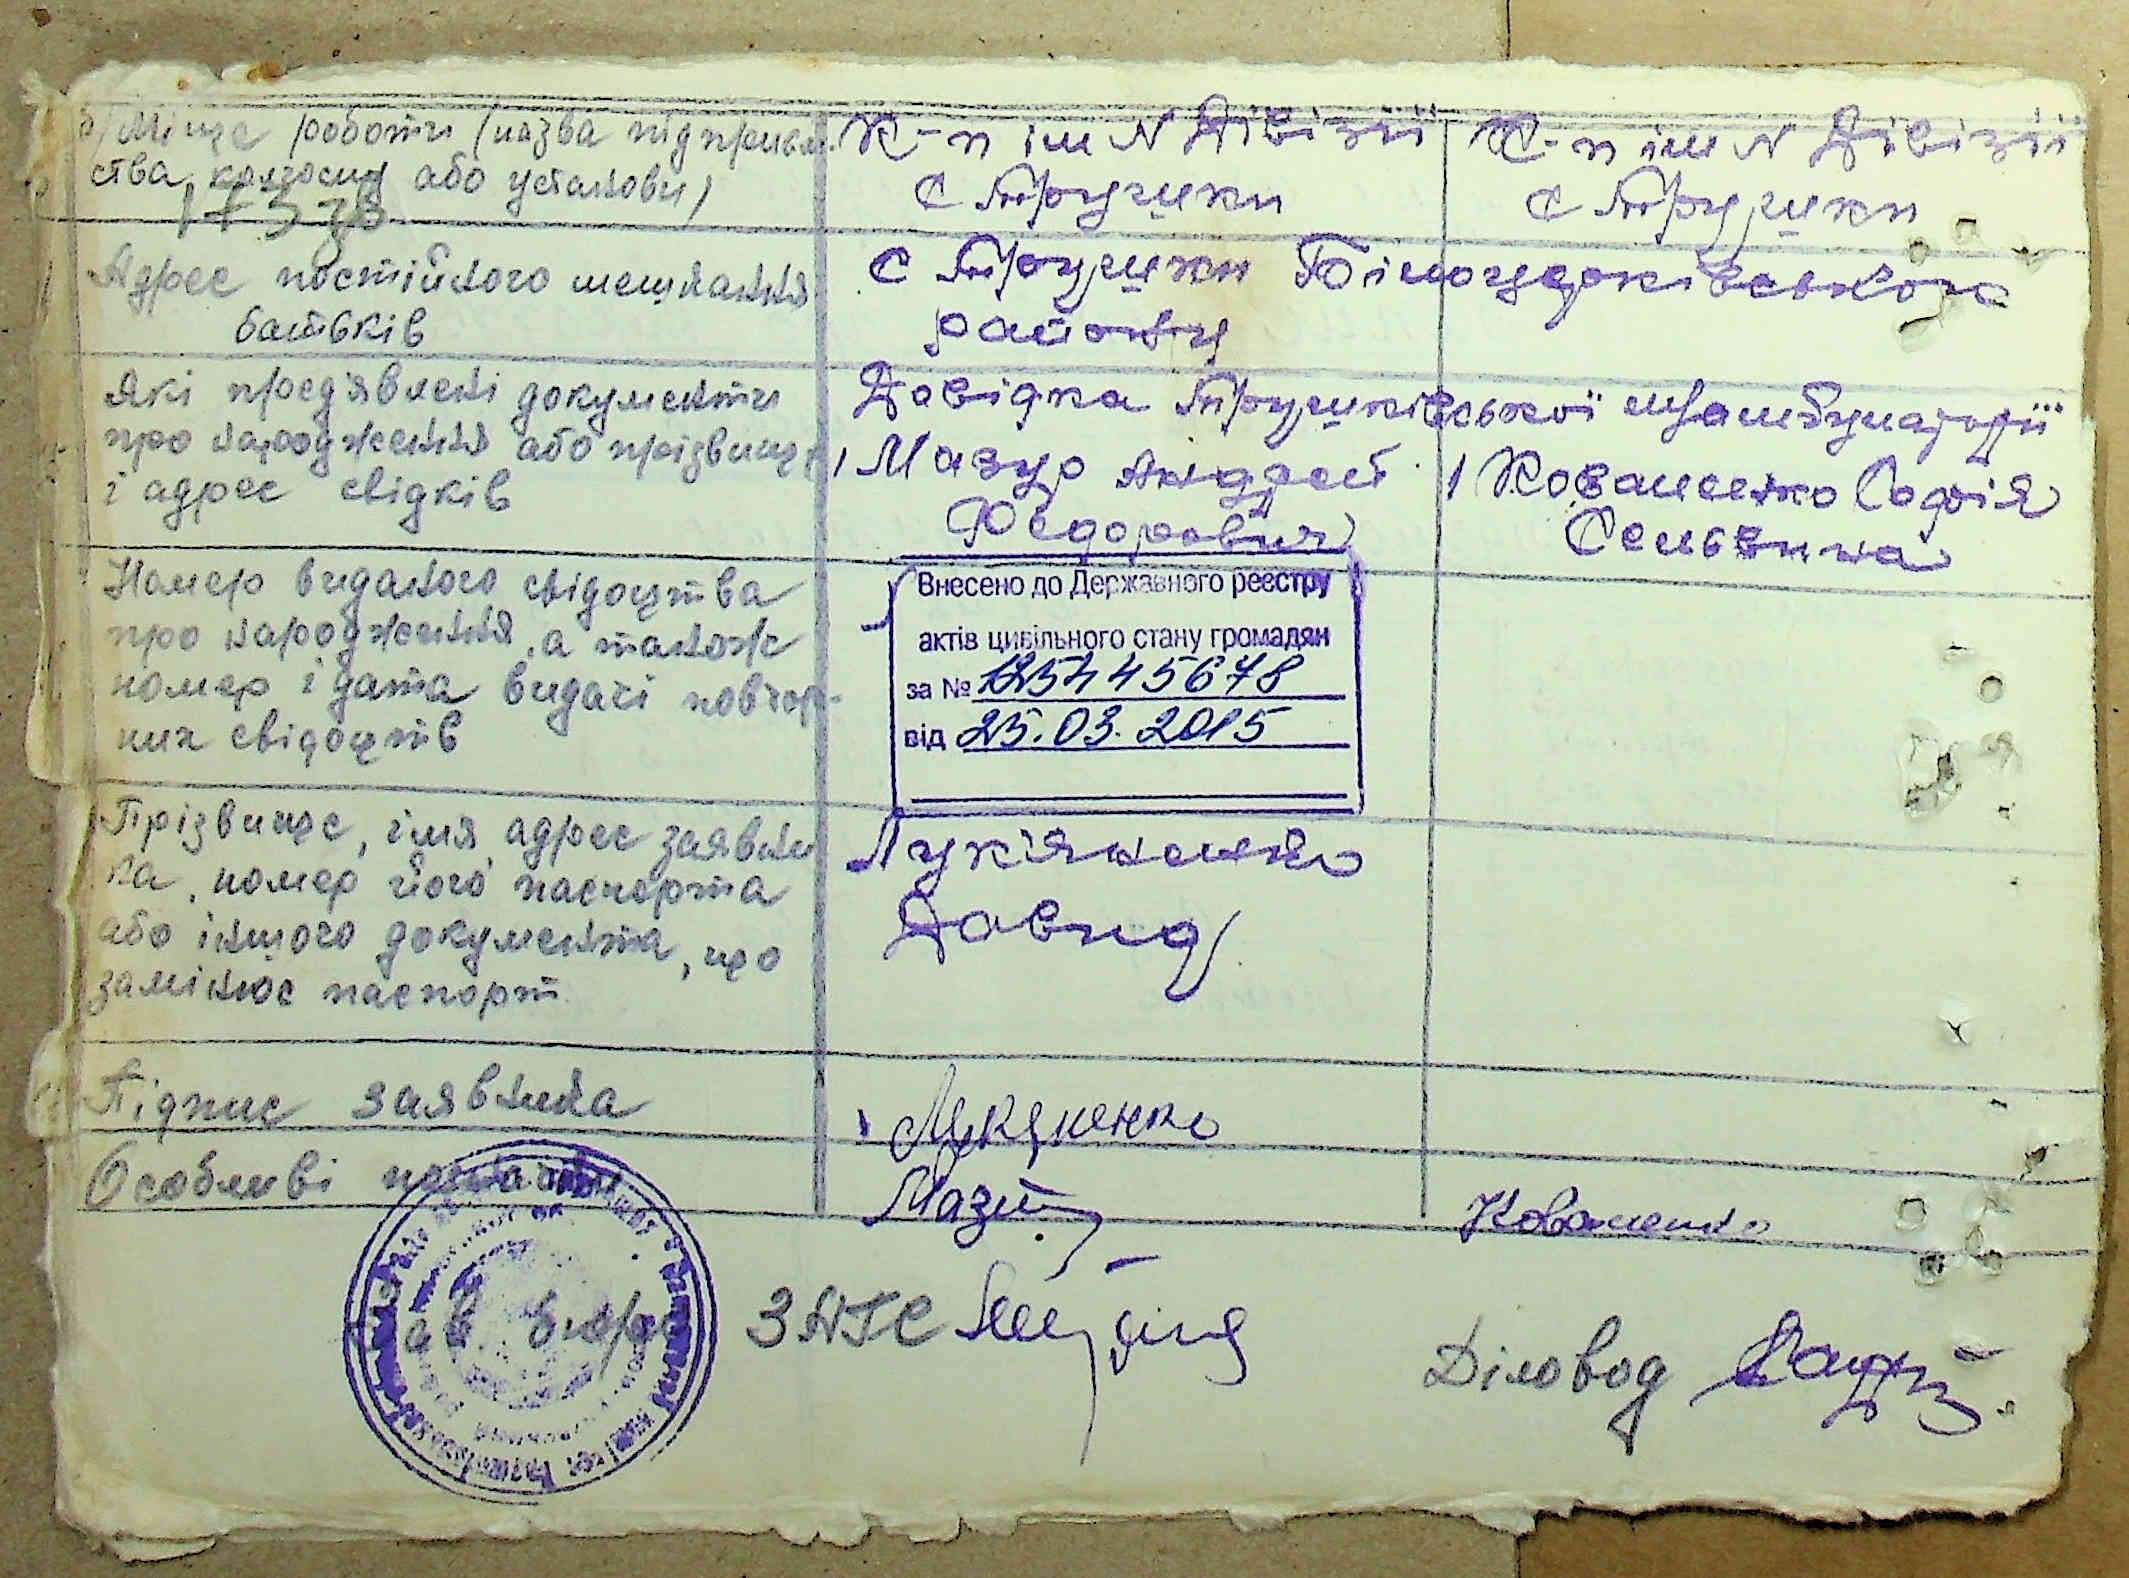 б/ Місце роботи (назва підприєм-
ства, колгоспу або установи)
К-п ім N Дівізії
с Трушки
К-п ім N Дівізії
с Трушки
Адрес постійного мешкання
батьків
с Трушки Білоцерківського
району
Які пред'явлені документи
про народження або прізвище
і адрес свідків
Довідка Трушківської амбулаторії
1 Мазур Андрей
Федорович
1 Коваленко Софія
Номер виданого свідоцтва
про народження, а також
номер і дата видачі повтор-
них свідоцтв
Внесено до Державного реєстру
актів цивільного стану громадян
за №
від 25.03.2015
Прізвище, імя, адрес заявни
ка, номер його паспорта
або іншого документа, що
замінює паспорт
Лук'яненко
Давид
Підпис заявника
Лукяненко
Особливі
Мазур
Коваленко
Зав. бюро ЗАГС
Діловод